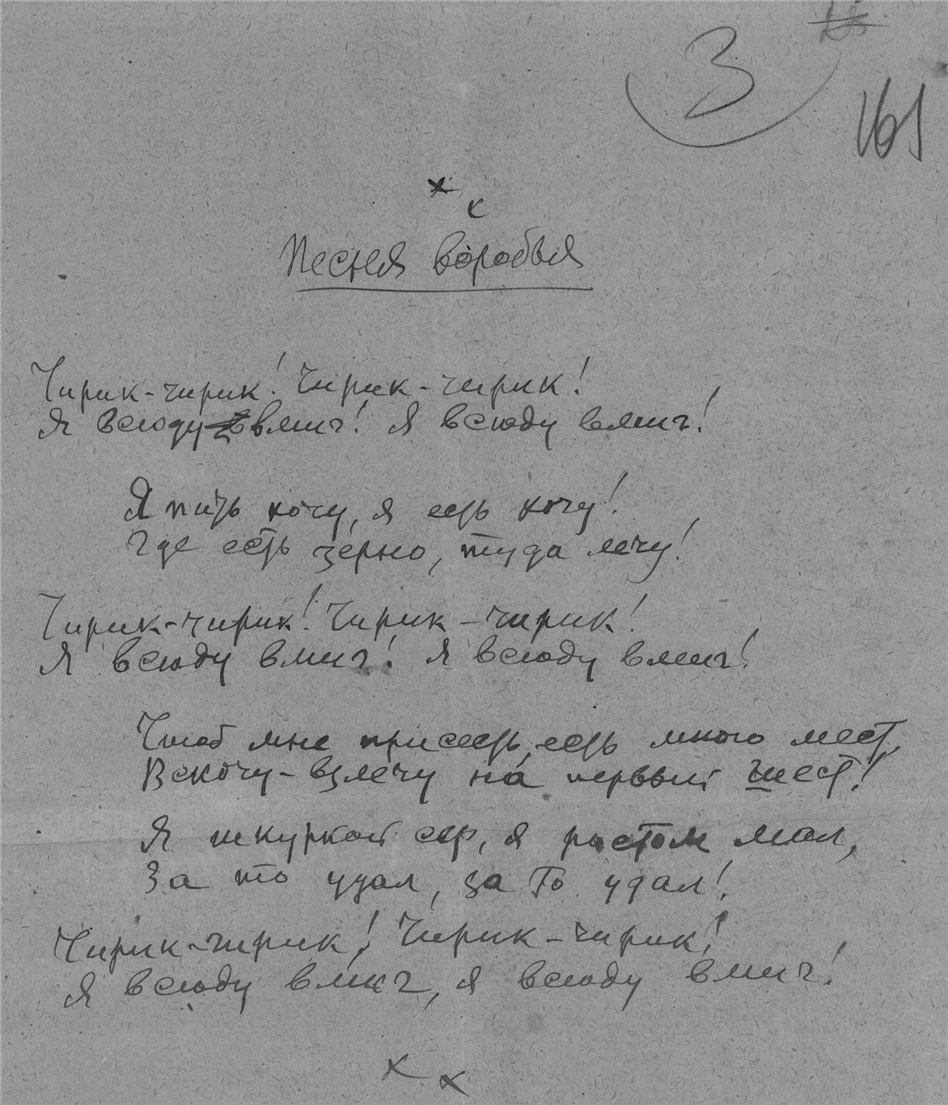 3
161
х х
Песня воробья
Чирик-чирик! Чирик-чирик!
Я всюду вмиг! Я всюду вмиг!
Я пить хочу, я есть хочу!
Где есть зерно, туда лечу!
Чирик-чирик! Чирик-чирик!
Я всюду вмиг! Я всюду вмиг!
Чтоб мне присесть, есть много мест,
Вскочу-взлечу на первый шест!
Я шкуркой сер, я ростом мал,
За то удал, за то удал!
Чирик-чирик! Чирик-чирик!
Я всюду вмиг, я всюду вмиг!
х х